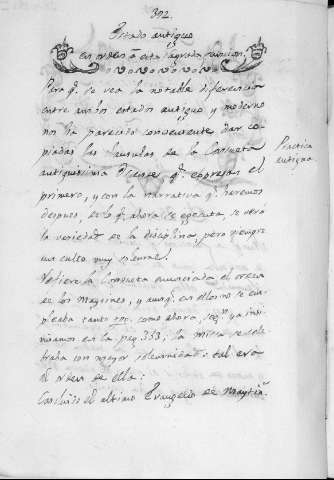 392.
Estado antiguo
en orden a esta sagrada funcion.
Para q.e se vea la notable diferencia
entre ambos estados antiguo y moderno
nos ha parecido conveniente dar co-
piadas las clausulas de la Consueta
Practica
antigua
antiquisima q.e expresan el
primero, y con la narrativa q.e haremos
despues, de lo q.e ahora se egecuta, se verá
la variedad de la disciplina, pero siempre
un culto muy solemne.
Refiere la Consueta anunciada el orden
de los Maytines, y aunq.e en ellos no se em-
pleaba tanto como ahora, seg.n ya insi-
nuamos en la pag. 333, la misa se cele-
braba con mayor solemnidad: tal era
el orden de ella:
el ultimo Evangelio de Mayti.s